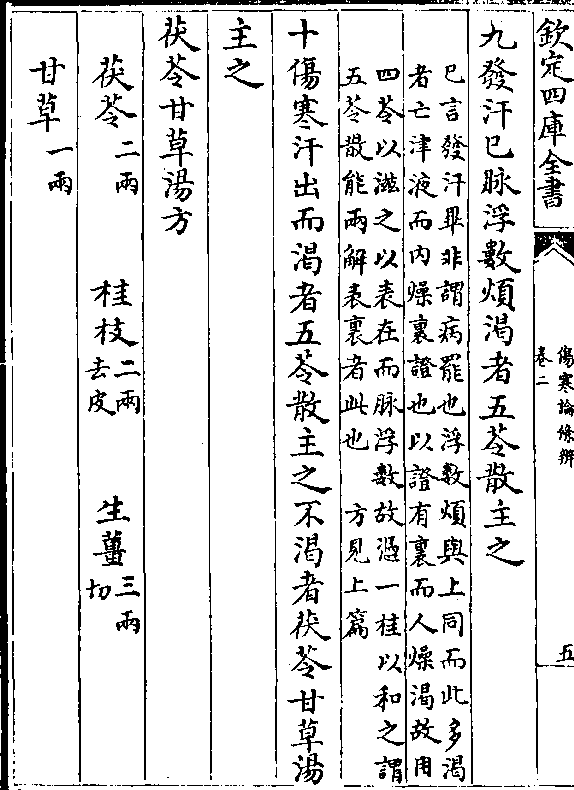 欽定四庫全書
傷寒論條辨
卷二
五
九發汗已脉浮數煩渴者五苓散主之
已言發汗畢非謂病罷也浮數煩與上同而此多渴
者亡津液而内燥裏證也以證有裏而人燥渴故用
四苓以滋之以表在而脉浮數故憑一桂以和之謂
五苓散能兩解表裏者此也　方見上篇
十傷寒汗出而渴者五苓散主之不渴者茯苓甘草湯
主之
茯苓甘草湯方
茯苓二兩　桂枝二兩去皮　生薑三兩切
甘草一兩